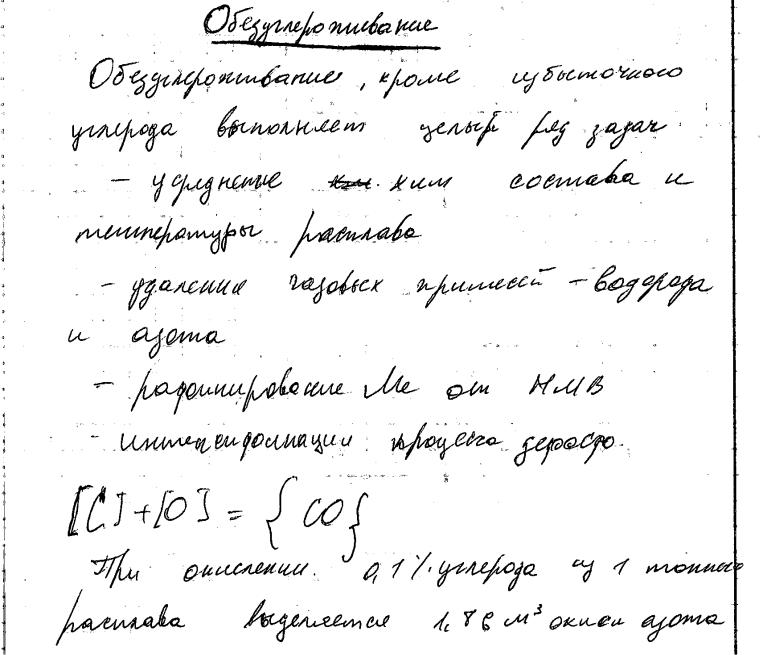 Обезуглероживание
Обезуглероживание, кроме избыточного
углерода выполняет целый ряд задач
- усреднение хим состава и
температуры расплава
- удаления газовых примесей - водорода
и азота
- рафинирование Ме от НМВ
- интенсификации процесса дефосфо.
[C] + [O] = {CO}
При окислении 0,1% углерода из 1 тонны
расплава выделяется 1,86 м³ окиси азота